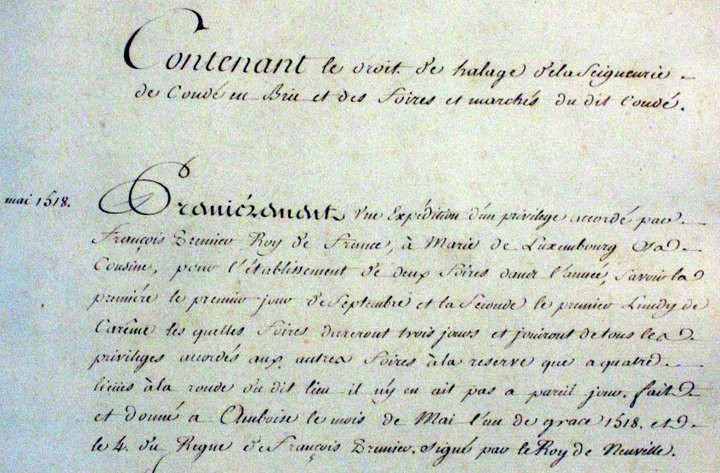 Contenant le droit de halage de la Seigneurie
de Condé en Brie et des foires et marchés du dit Condé.
mai 1518.
Premiérement Une Expédition d'un privilege accordé par
François Premier Roy de France, à Marie de Luxembourg Sa
Cousine, pour l'établissement de deux foires dans l'année, Savoir la
premiére le premier jour de Septembre et la Seconde le premier Lundy de
Carême les quelles foires dureront trois jours et jouiront de tous les
privileges accordés aux autres foires à la reserve que a quatre
lieües à la ronde du dit lieu il n'y en ait pas a pareil jour. fait
et donné a Amboise le mois de Mai l'an de grace 1518. et
le 4. du Regne de François Premier. Signé par le Roy de Neuville.